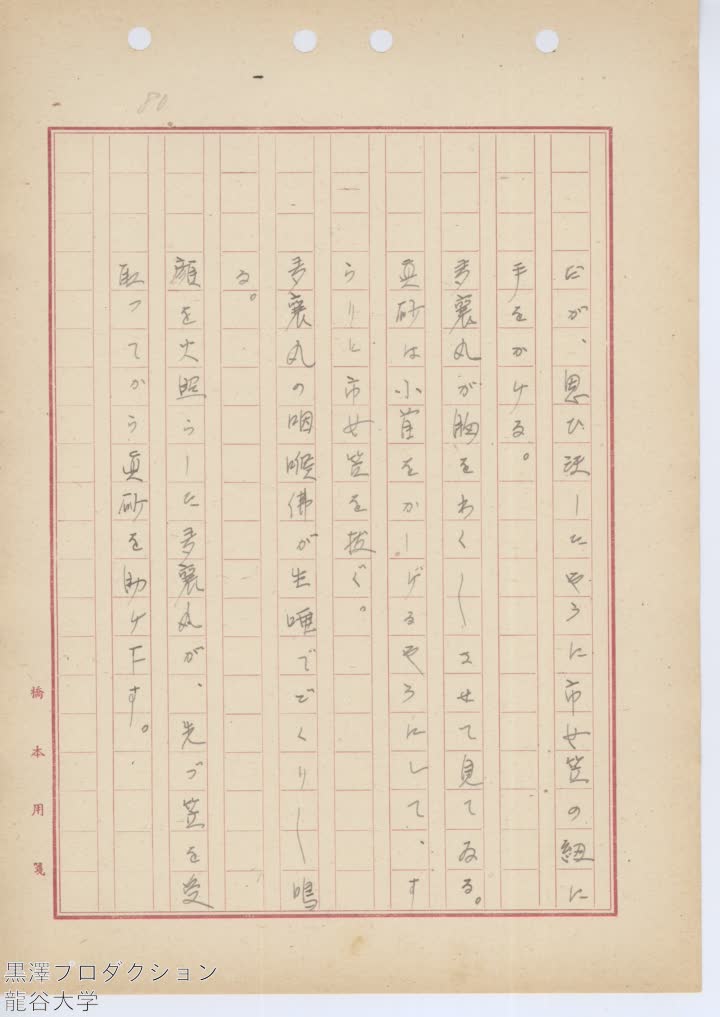 80
だが、思ひ決したやうに市女笠の紐に
手をかける。
多襄丸が胸をわく〱させて見てゐる。
真砂は小首をかしげるやうにして、す
らりと市女笠を拔ぐ。
多襄丸の咽喉佛が生唾でごくり〱鳴
る。
顔を火照らした多襄丸が、先づ笠を受
取つてから真砂を助け下す。
橋本用箋
黒澤プロダクション
龍谷大学